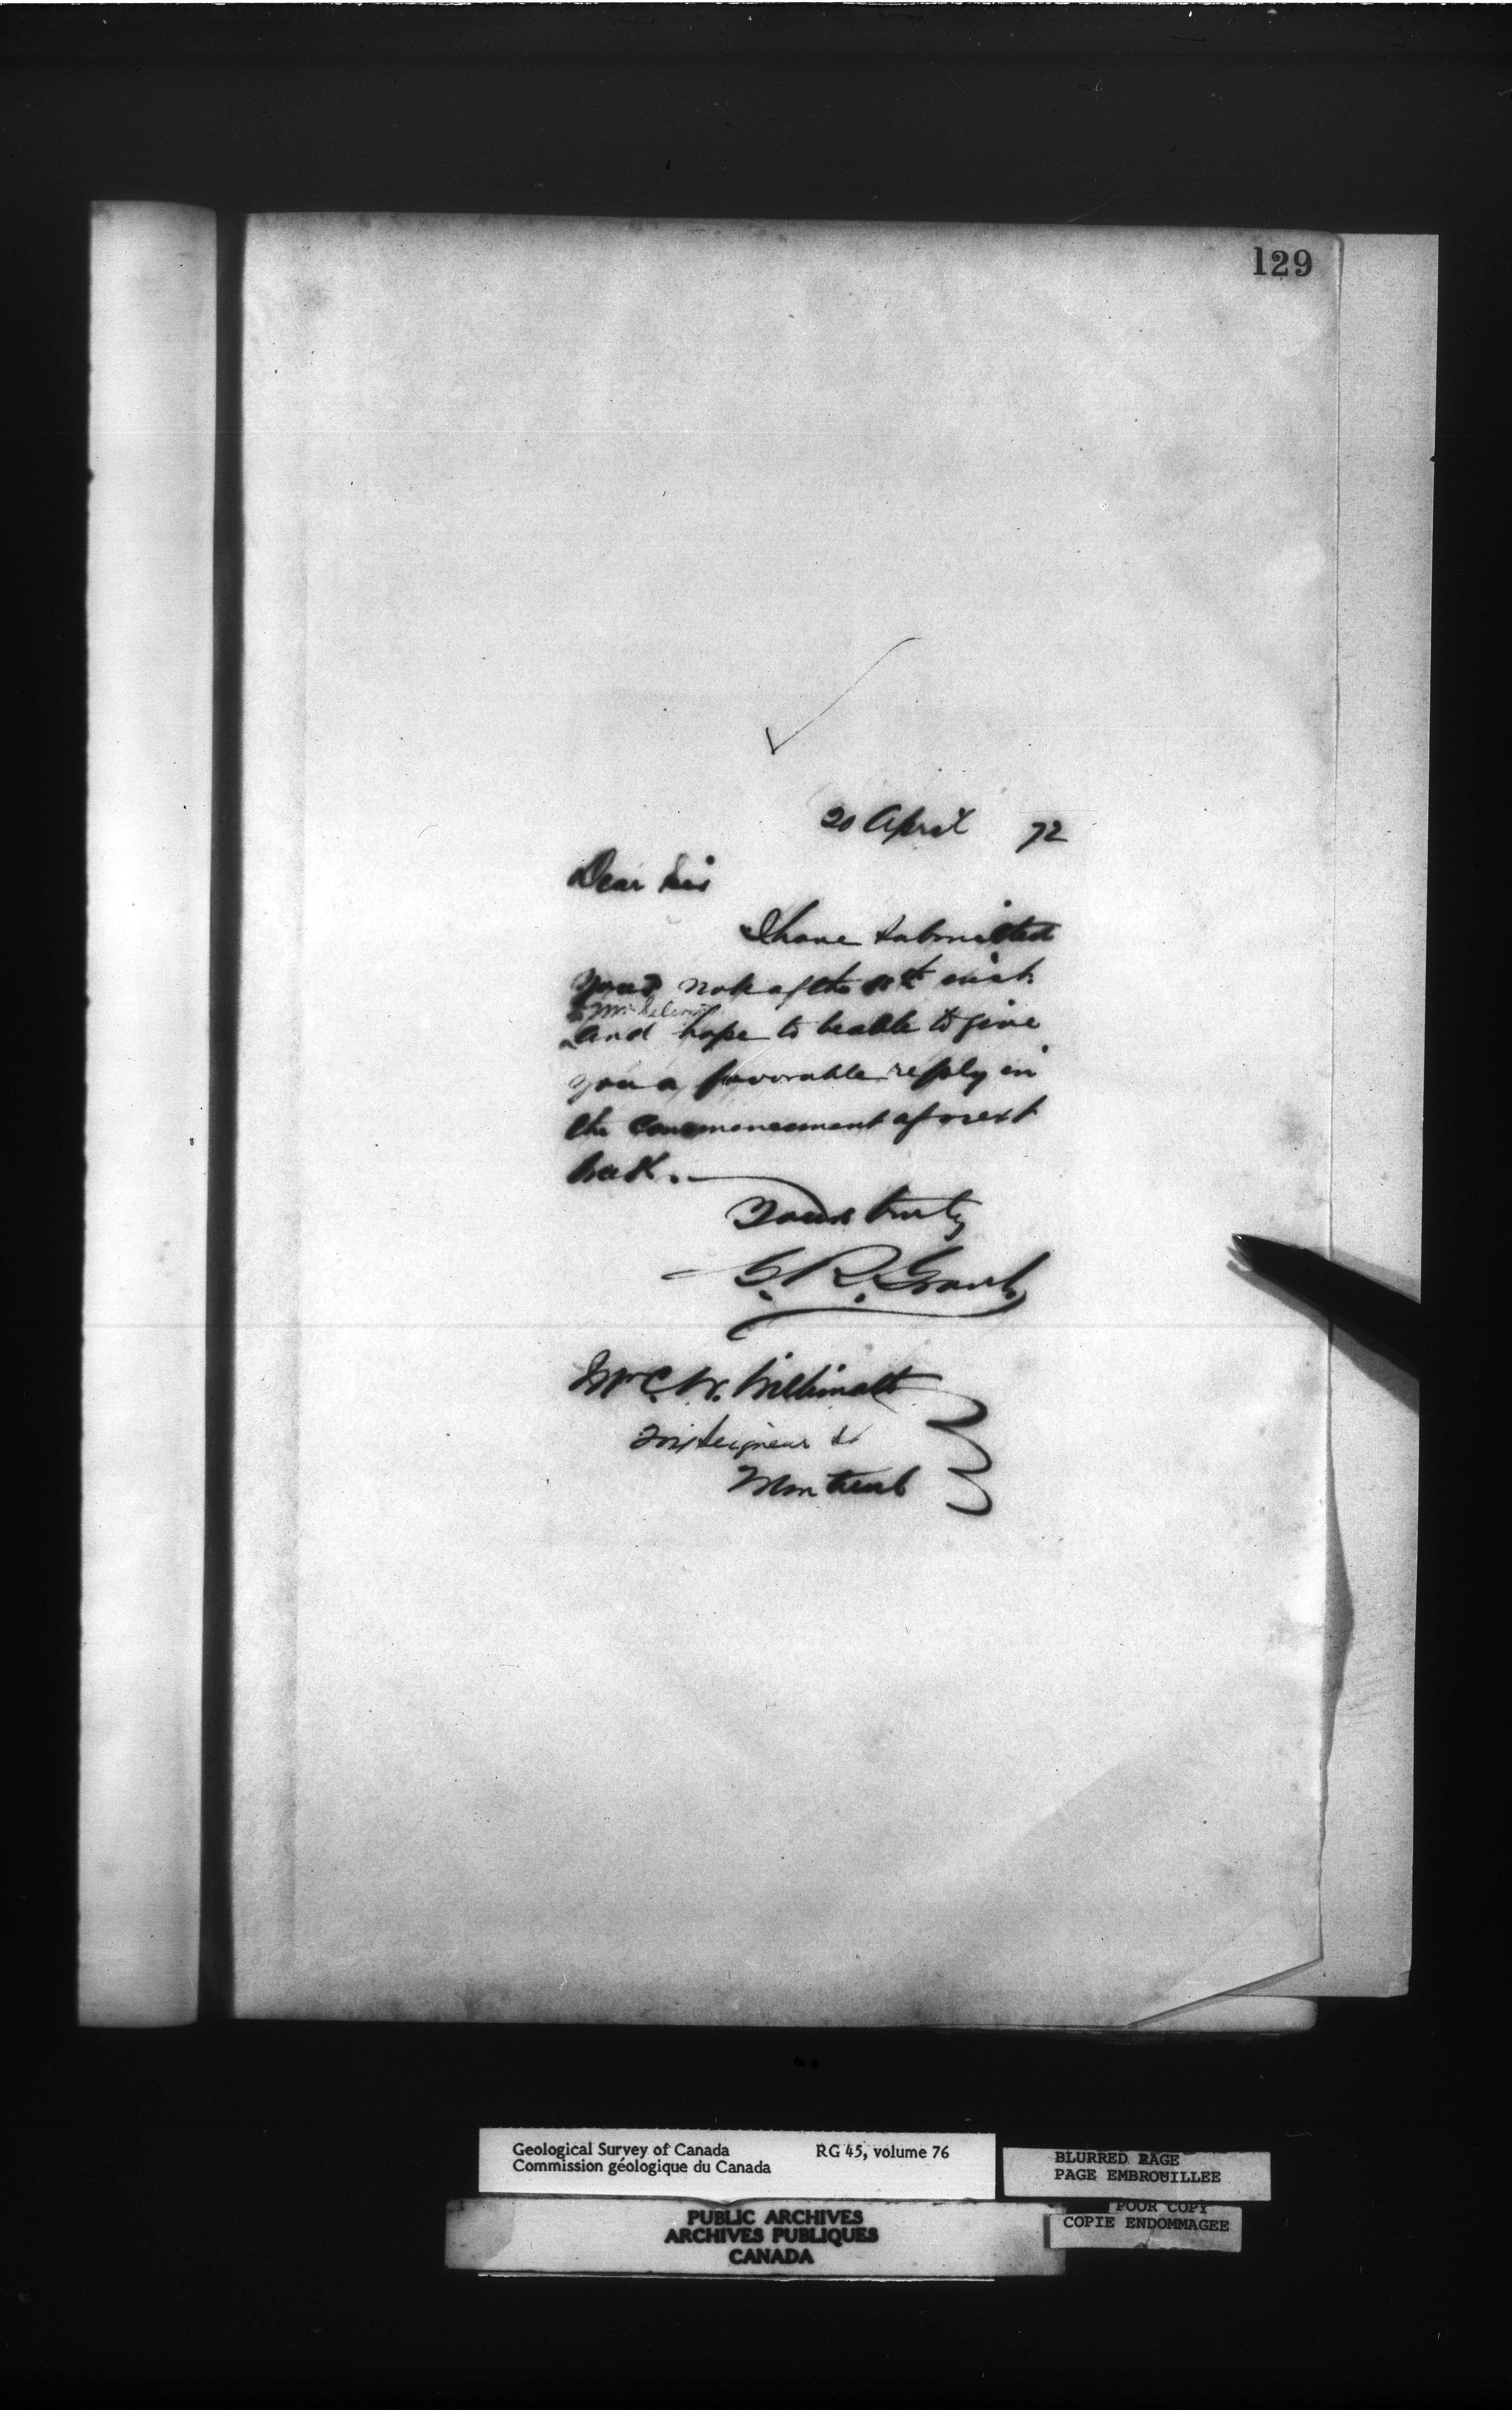 129
20 April 72
Dear Sir
I have submitted
your note of the inst.
to Mr Selwyn
and hope to be able to give
you a favorable reply in
the commencement of next
week.
Yours truly
G. R. Grant
Mr C. W. Willimott
Seigneur St
Montreal
Geological Survey of Canada RG 45, volume 76
Commission géologique du Canada
BLURRED PAGE
PAGE EMBROUILLEE
POOR COPY
COPIE ENDOMMAGEE
PUBLIC ARCHIVES
ARCHIVES PUBLIQUES
CANADA